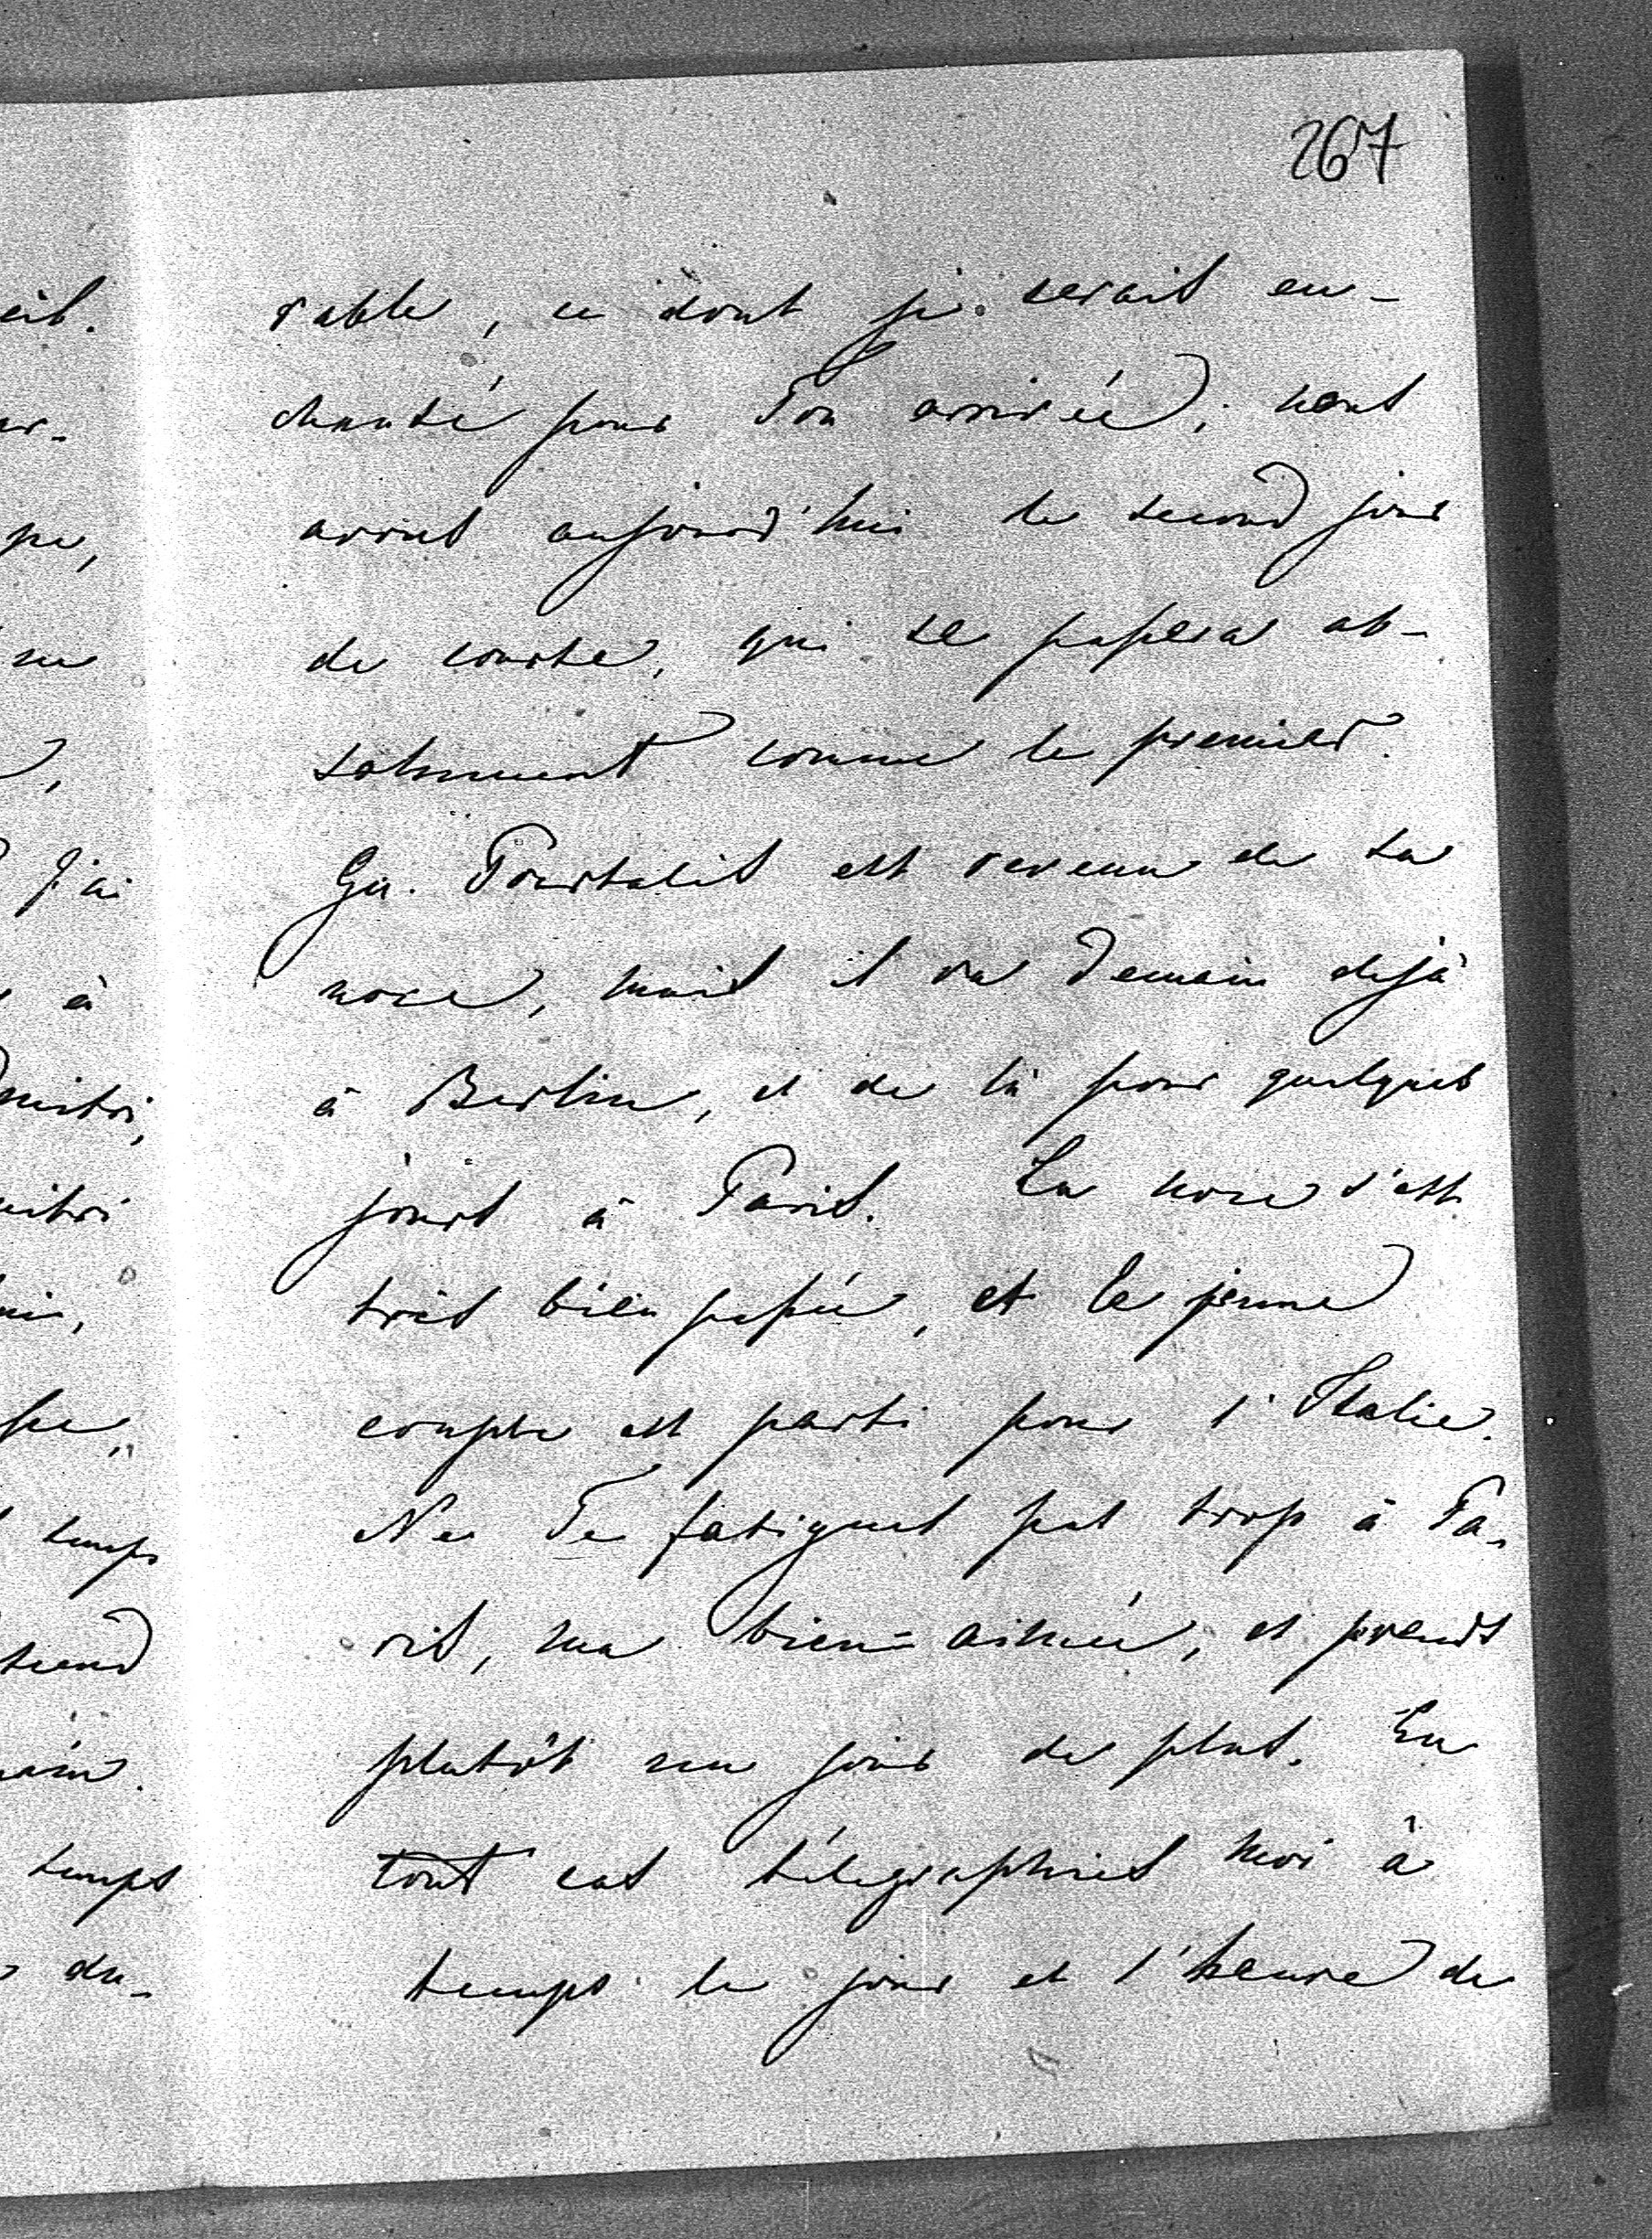 267
rable, ce dont je serais en-
chanté pour Ton arrivée; nous
avons aujourd'hui le second jour
de course, qui se passera ab-
solument comme le premier.
Gu. Pourtalès est revenu de sa
noce, mais il va demain dejà
à Berlin, et de là pour quelques
jours à Paris. La noce s'est
très bien passée, et le jeune
couple est parti pour l'Italie.
Ne Te fatigues pas trop à Pa-
ris, ma bien-aimée, et prends
plutôt un jour de plus. En
tout cas télegraphies moi à
temps le jour et l'heure de